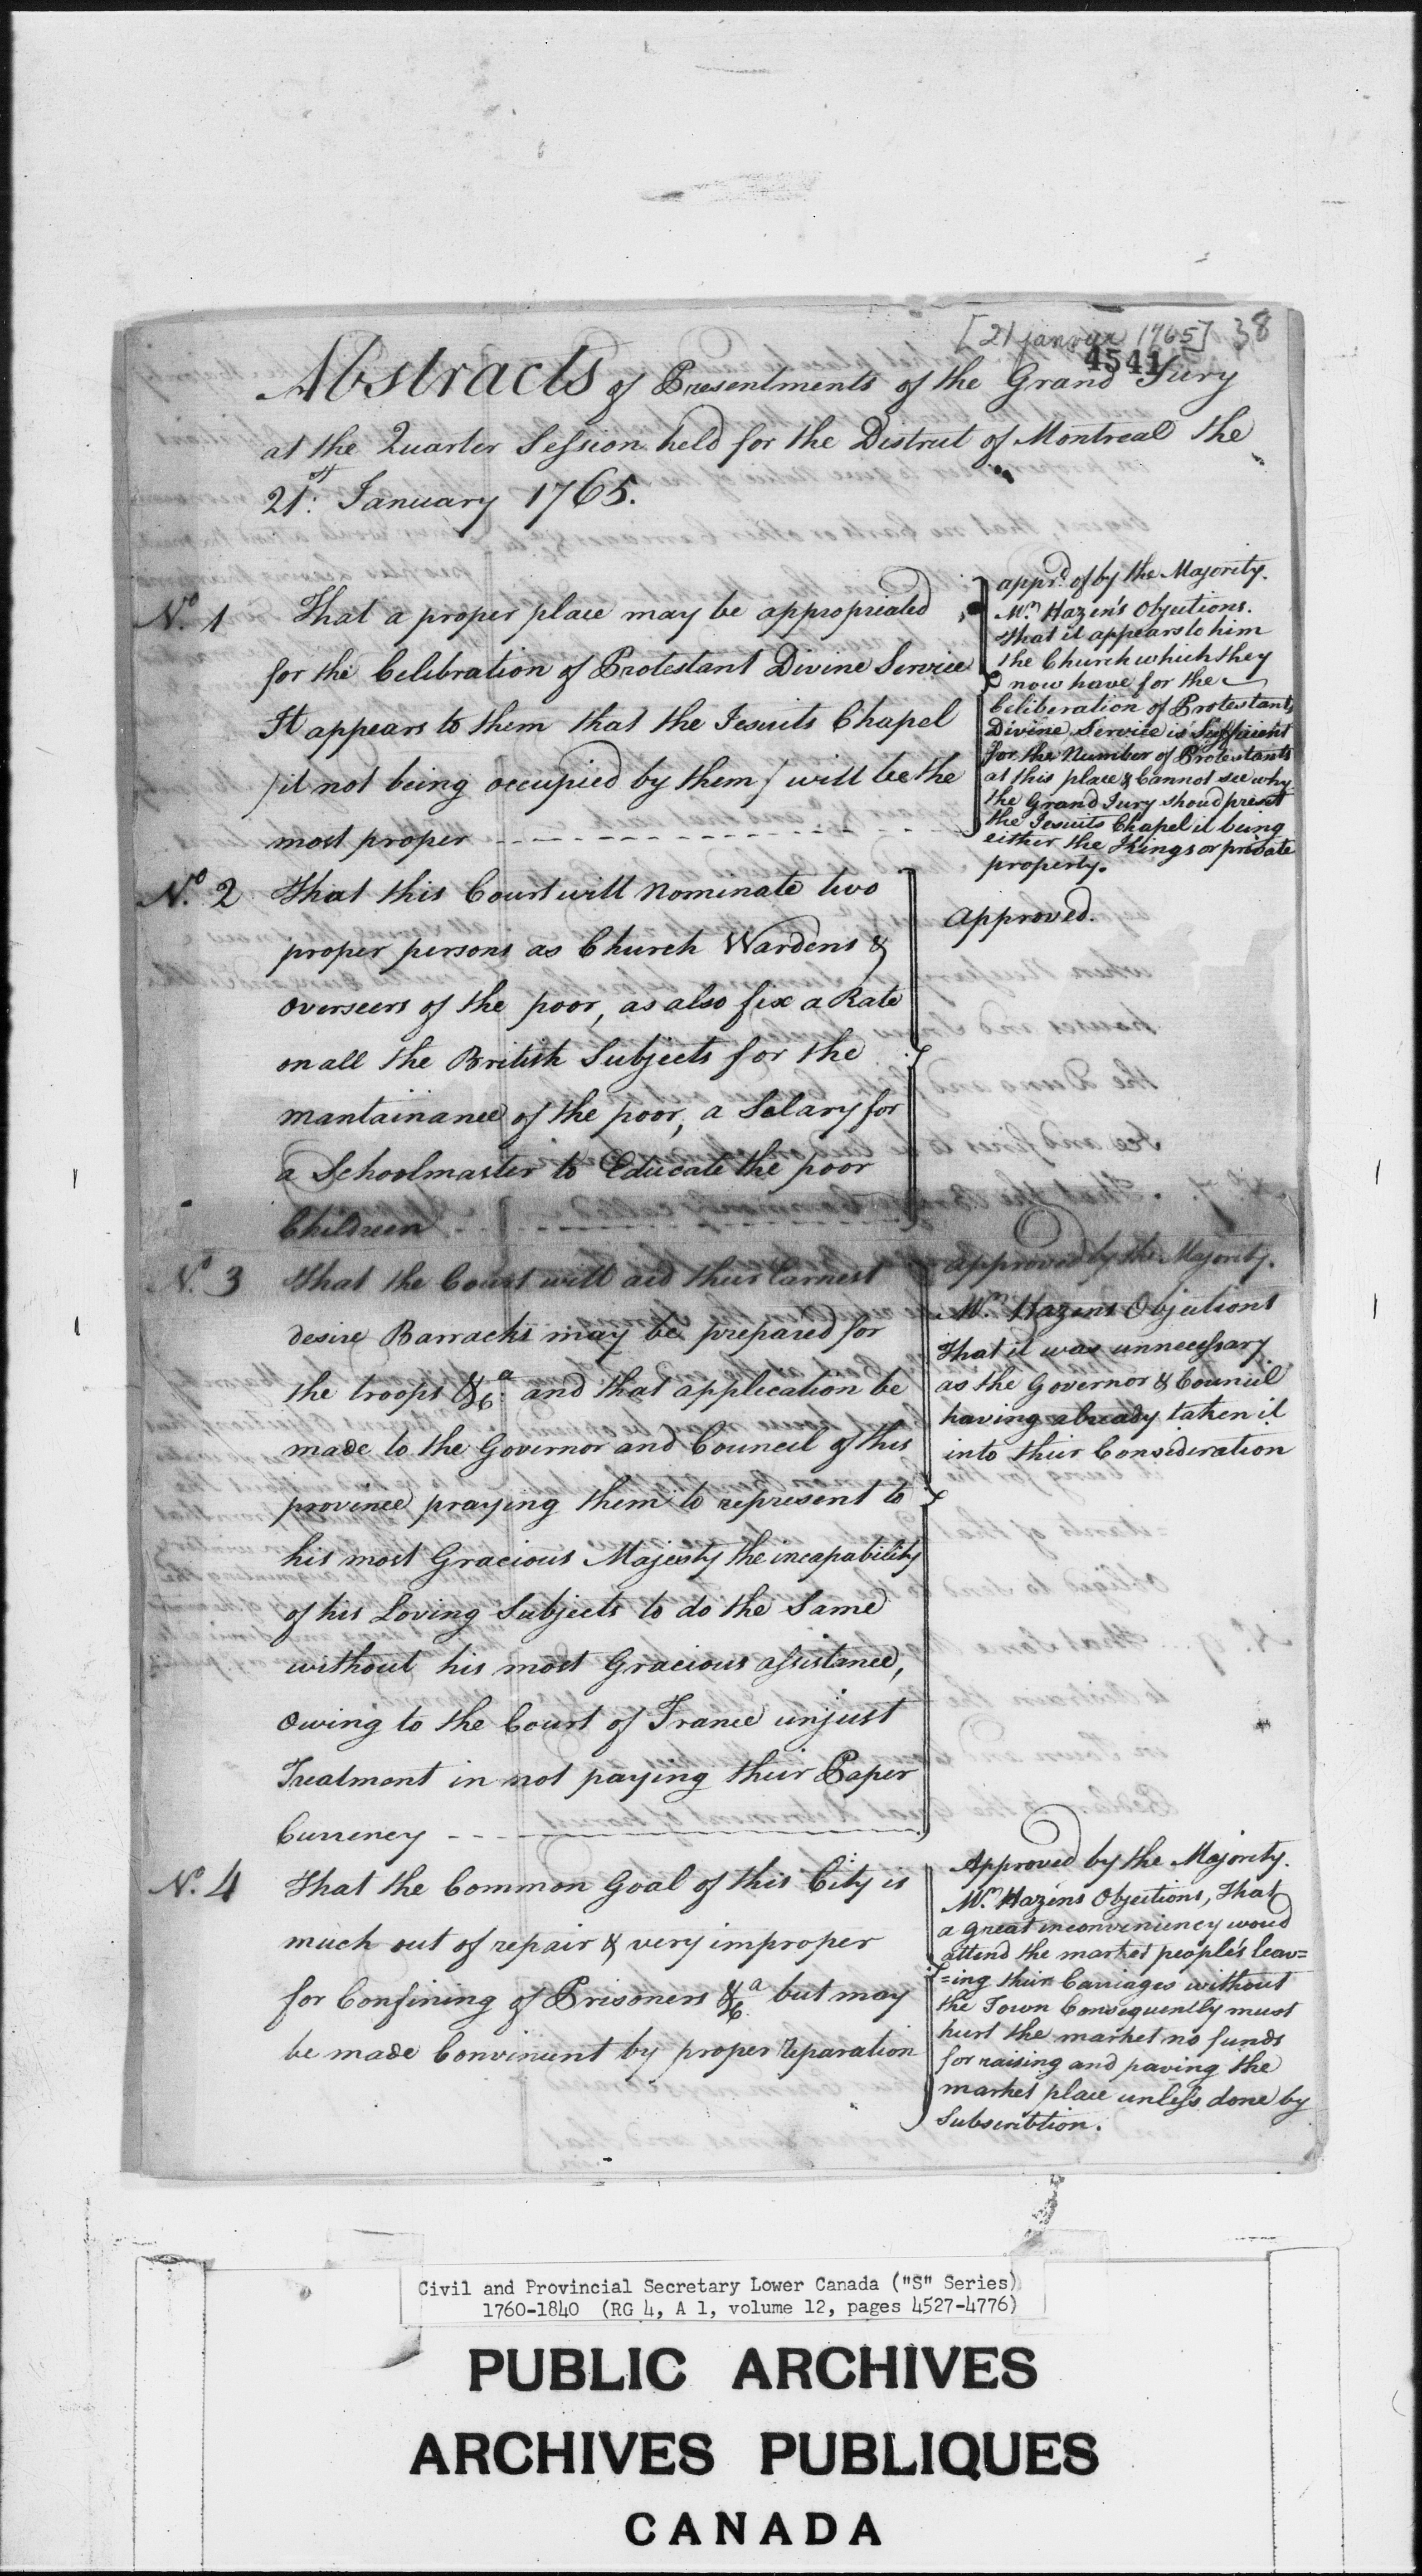 [21 janvier 1765] 38
4541
Abstracts of Presentments of the Grand Jury
at the Quarter Session held for the District of Montreal the
21st: January 1765.
No. 1 That a proper place may be appropriated
for the Celebration of Protestant Divine Service
It appears to them that the Jesuits Chapel
/it not being occupied by them/ will be the
most proper
appr.d of by the Majority.
Mr. Hazen's Objections.
that it appears to him
the Church which they
now have for the
Celibration of Protestant
Divine Service is Suffitient
for the Number of Protestants
at this place & Cannot see why
the Grand Jury shoud presnt
the Jesuits Chapel it being
either the Kings or private
property.
No. 2 That this Court will nominate two
proper persons as Church Wardens &
Overseers of the poor, as also fix a Rate
on all the British Subjects for the
mantainance of the poor, a Salary for
a Schoolmaster to Educate the poor
Children
approved.
No. 3 that the Court will aid their Earnest
desire Barracks may be prepared for
the troops &c.a and that application be
made to the Governor and Council of this
province praying them to represent to
his most Gracious Majesty the incapability
of his Loving Subjects to do the Same
without his most Gracious assistance,
Owing to the Court of France unjust
Treatment in not paying their Paper
Currency
approved by the Majority.
Mr. Hazens Objections
That it was unnecessary
as the Governor & Council
having already taken it
into their Consideration
No. 4 That the Common Goal of this City is
much out of repair & very improper
for Confining of Prisoners &c.a but may
be made Convinient by proper reparation
Approved by the Majority.
Mr. Hazens Objections, That
a great inconveniency woud
attend the market people's leav=
=ing their Carriages without
the Town Consequently must
hurt the market no funds
for raising and paving the
market place unless done by
Subscribtion.
Civil and Provincial Secretary Lower Canada ("S" Series)
1760-1840 (RG 4, A 1, volume 12, pages 4527-4776)
PUBLIC ARCHIVES
ARCHIVES PUBLIQUES
CANADA